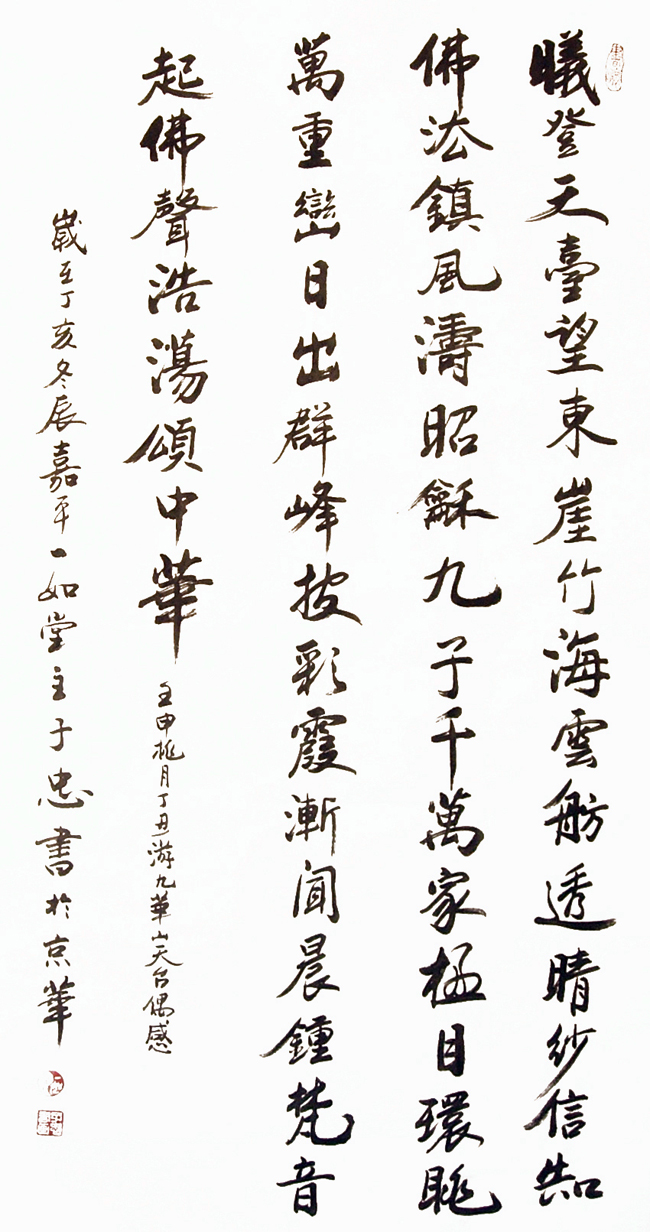 曦登天臺望東崖竹海雲舫透晴紗信知
佛法鎮風濤昭龢九子千萬家極目環眺
萬重巒日出群峰披彩霞漸聞晨鍾梵音
起佛聲浩蕩頌中華
壬申桃月丁丑游九華山天台偶感
歲在丁亥冬辰嘉平一如堂主于忠書於京華